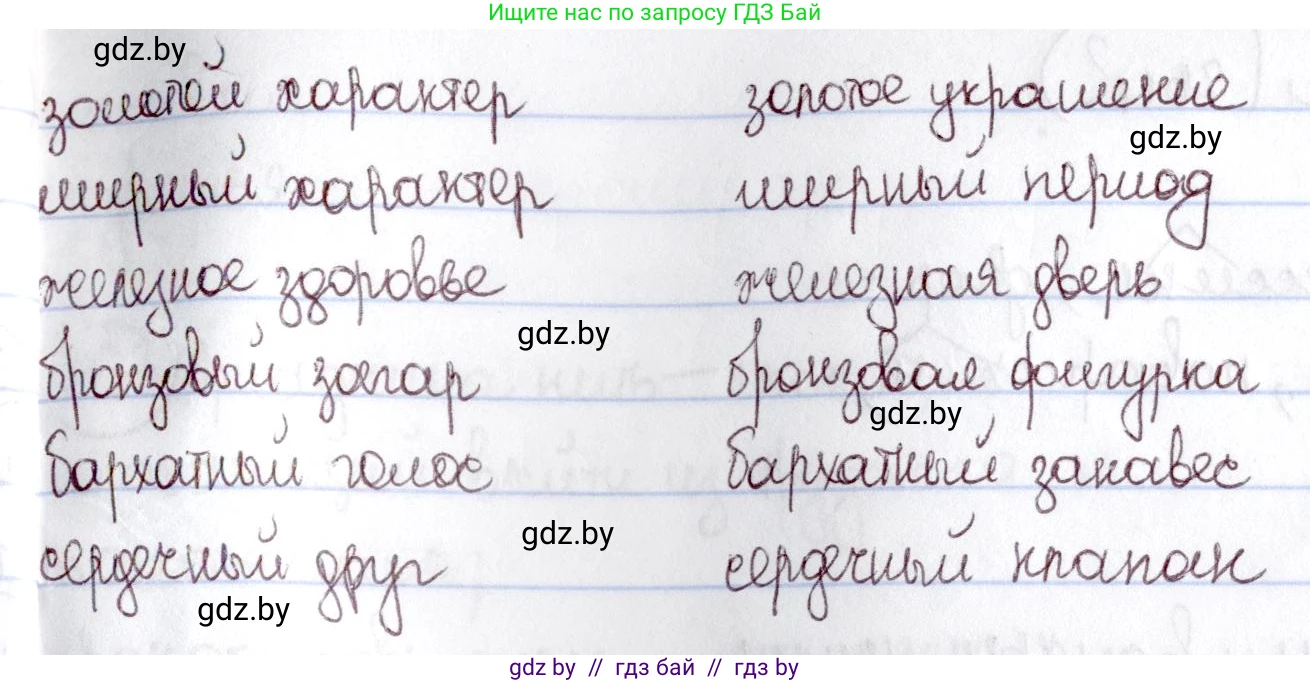 Ищите нас по запросу ГДЗ Бай
gdz.by
золотой характер золотое украшение
gdz.by
мирный характер мирный период
железное здоровье железная дверь
gdz.by
бронзовый загар бронзовая фигурка
gdz.by
бархатный голос бархатный занавес
gdz.by
сердечный друг сердечный клапан
gdz.by
gdz by // гдз бай // гдз by